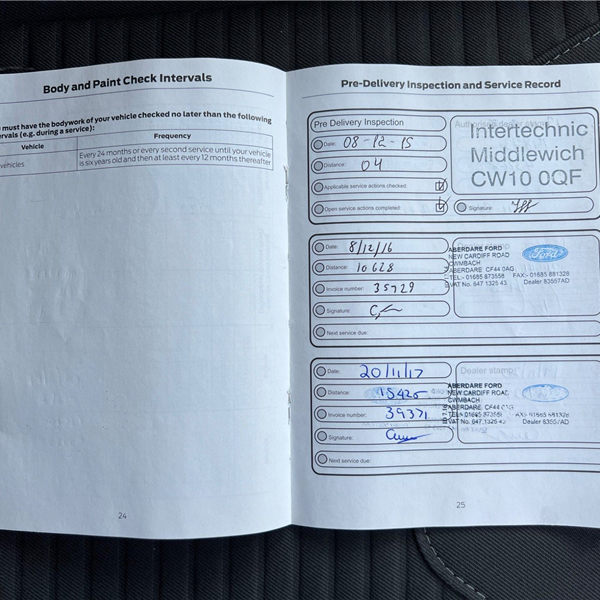 Body and Paint Check Intervals
must have the bodywork of your vehicle checked no later than the following
rvals (e.g. during a service):
Vehicle Frequency
vehicles. Every 24 months or every second service until your vehicle
is six years old and then at least every 12 months thereafter
24
Pre-Delivery Inspection and Service Record
Pre Delivery Inspection
Date: 08-12-15
Distance: 04
Applicable service actions checked:
Open service actions completed:
Intertechnic
Middlewich
CW10 0QF
Signature:
Date: 8/12/16
Distance: 10628
Invoice number: 35729
Signature:
Next service due:
ABERDARE FORD
NEW CARDIFF ROAD
CWMBACH
ABERDARE CF44 0AG
TEL - 01685 873558 FAX - 01685 881328
VAT No. 647 1325 43 Dealer 83557AD
Ford
Date: 20/11/17
Distance: 15425
Invoice number: 39371
Signature:
Next service due:
Dealer stamp
ABERDARE FORD
NEW CARDIFF ROAD
CWMBACH
ABERDARE
VAT No. 647 1325 Dealer 83557AD
25